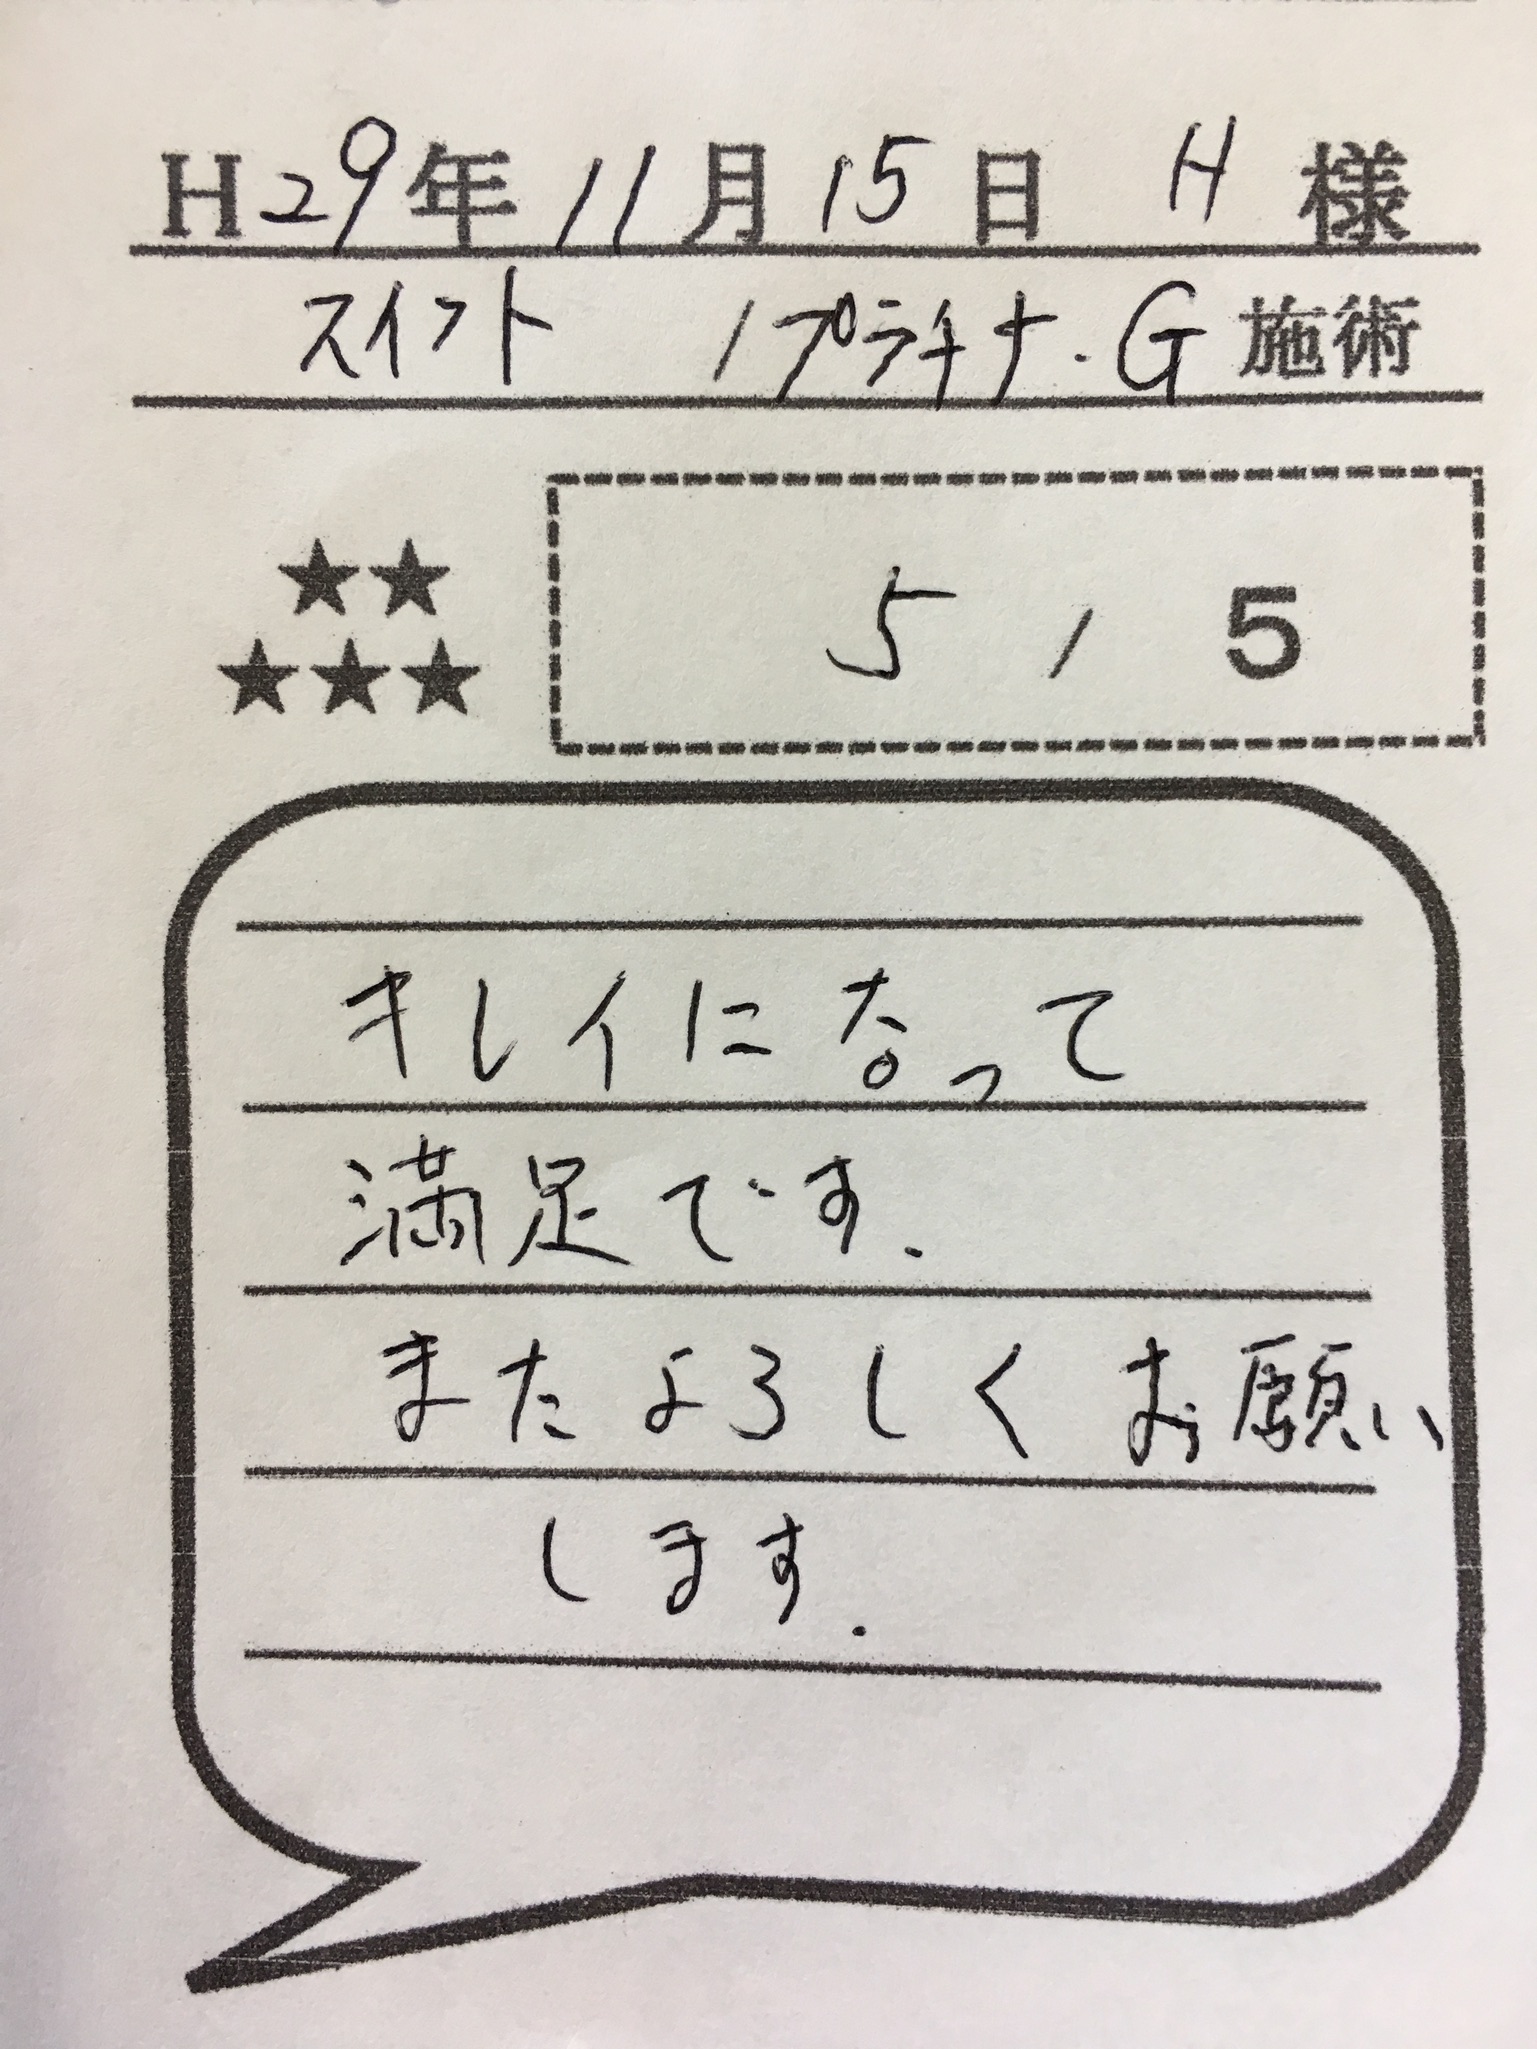 H29年11月15日 H 様
スイフト / プラチナ.G 施術
★★
★★★
5 / 5
キレイになって
満足です.
またよろしくお願い
します.